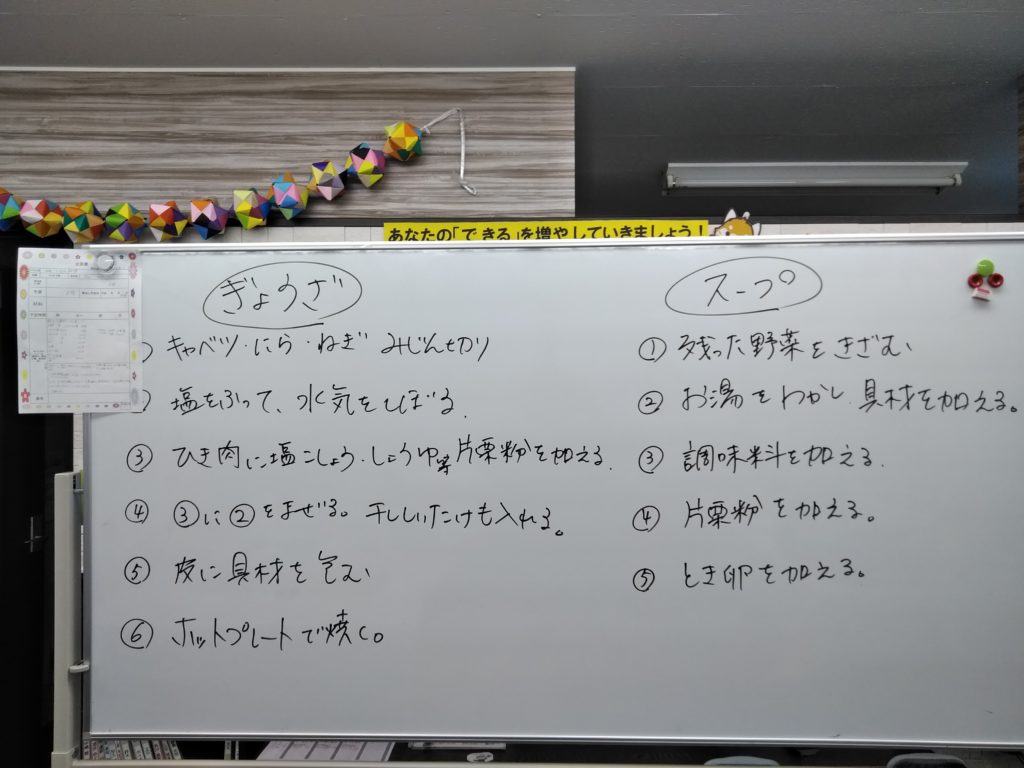 あなたの「できる」を増やしていきましょう!
ぎょうざ
キャベツ・にら・ねぎ みじん切り
塩をふって、水気をしぼる.
③ ひき肉に塩こしょう・しょうゆ等片栗粉を加える.
④ ③に②をまぜる。干ししいたけも入れる。
⑤ 皮に具材を包む
⑥ ホットプレートで焼く。
スープ
① 残った野菜をきざむ
② お湯をわかし、具材を加える。
③ 調味料を加える.
④ 片栗粉を加える。
⑤ とき卵を加える。